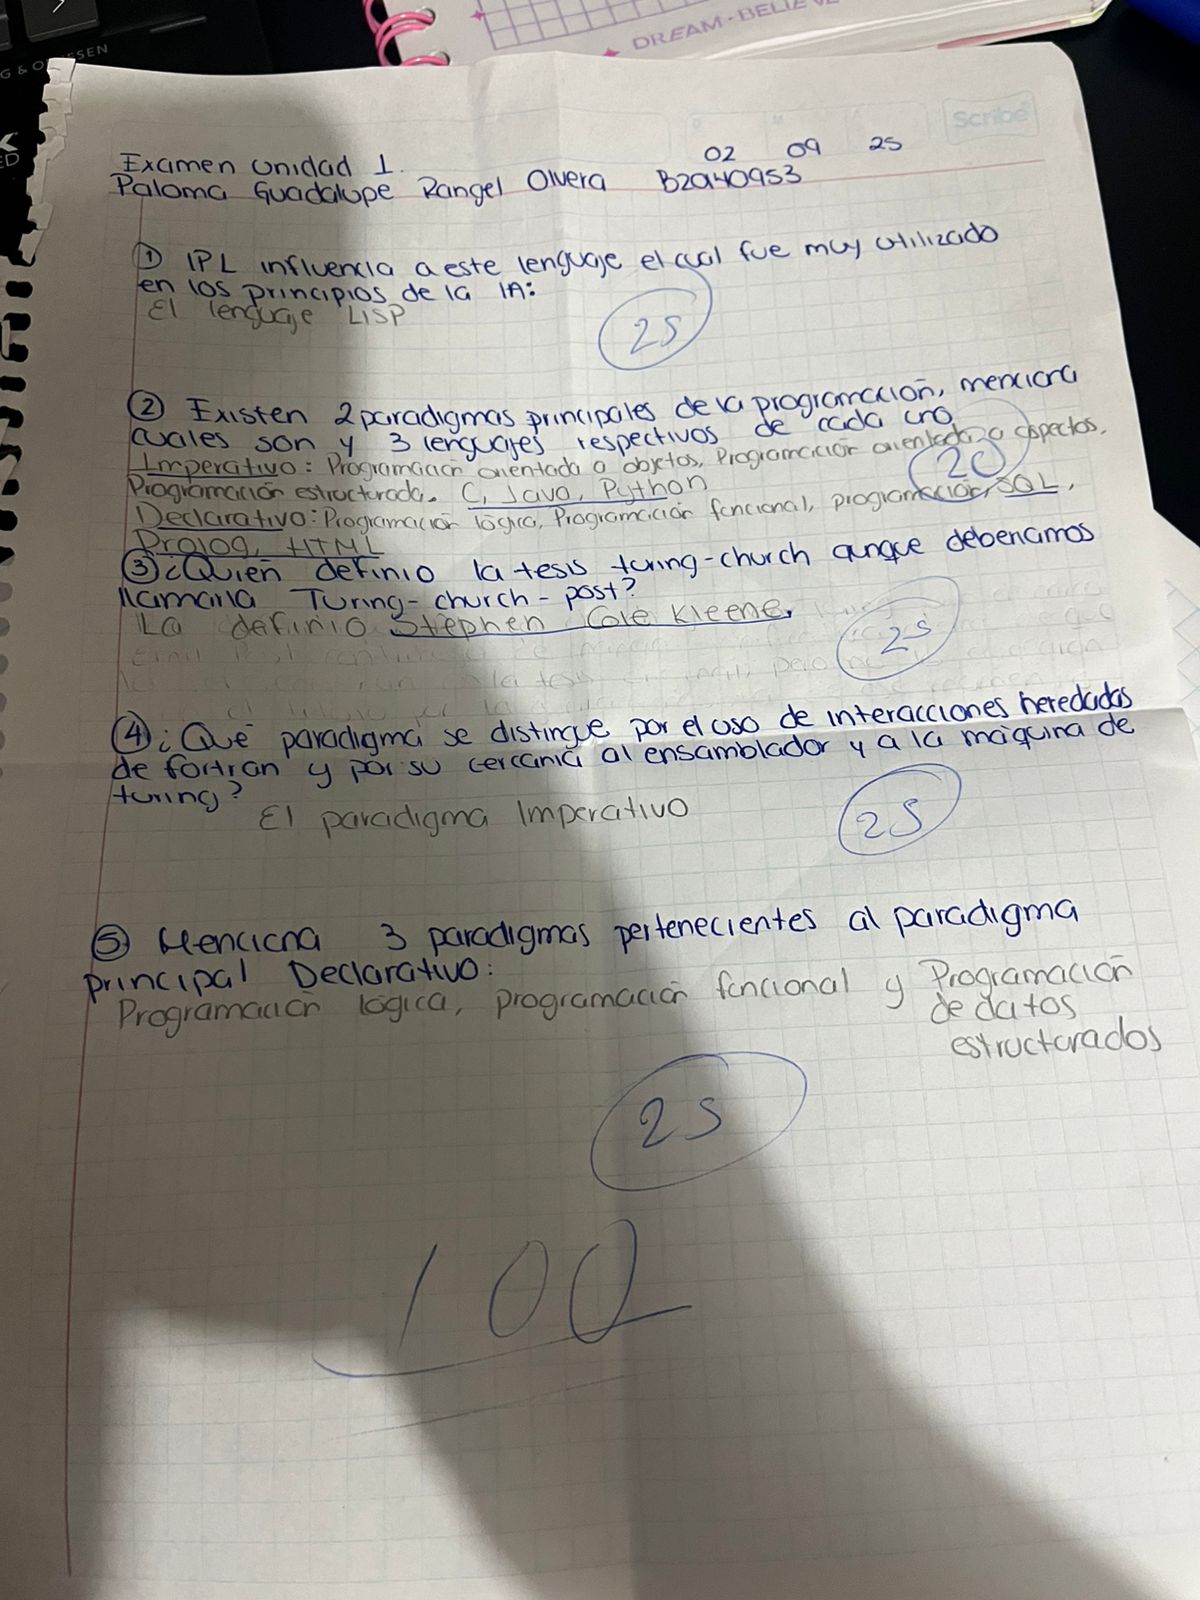 DREAM - BELIEVE
Scribe
02 09 25
Examen Unidad 1.
Paloma Guadalupe Rangel Olvera B20140953
① IPL influencia a este lenguaje el cual fue muy utilizado
en los principios de la IA:
El lenguaje LISP
25
② Existen 2 paradigmas principales de la programación, menciona
cuales son y 3 lenguajes respectivos de cada uno
Imperativo: Programación orientada a objetos, Programación orientada a aspectos,
20
Programación estructurada. C, Java, Python
Declarativo: Programación lógica, Programación funcional, programación, SQL,
Prolog, HTML
③ ¿Quién definio la tesis turing-church aunque deberiamos
llamarla Turing-church-post?
La definio Stephen Cole Kleene.
25
④ ¿Qué paradigma se distingue por el uso de interacciones heredadas
de fortran y por su cercanía al ensamblador y a la maquina de
turing?
El paradigma Imperativo
25
⑤ Menciona 3 paradigmas pertenecientes al paradigma
principal Declarativo:
Programación lógica, programación funcional y Programación
de datos
estructurados
25
100